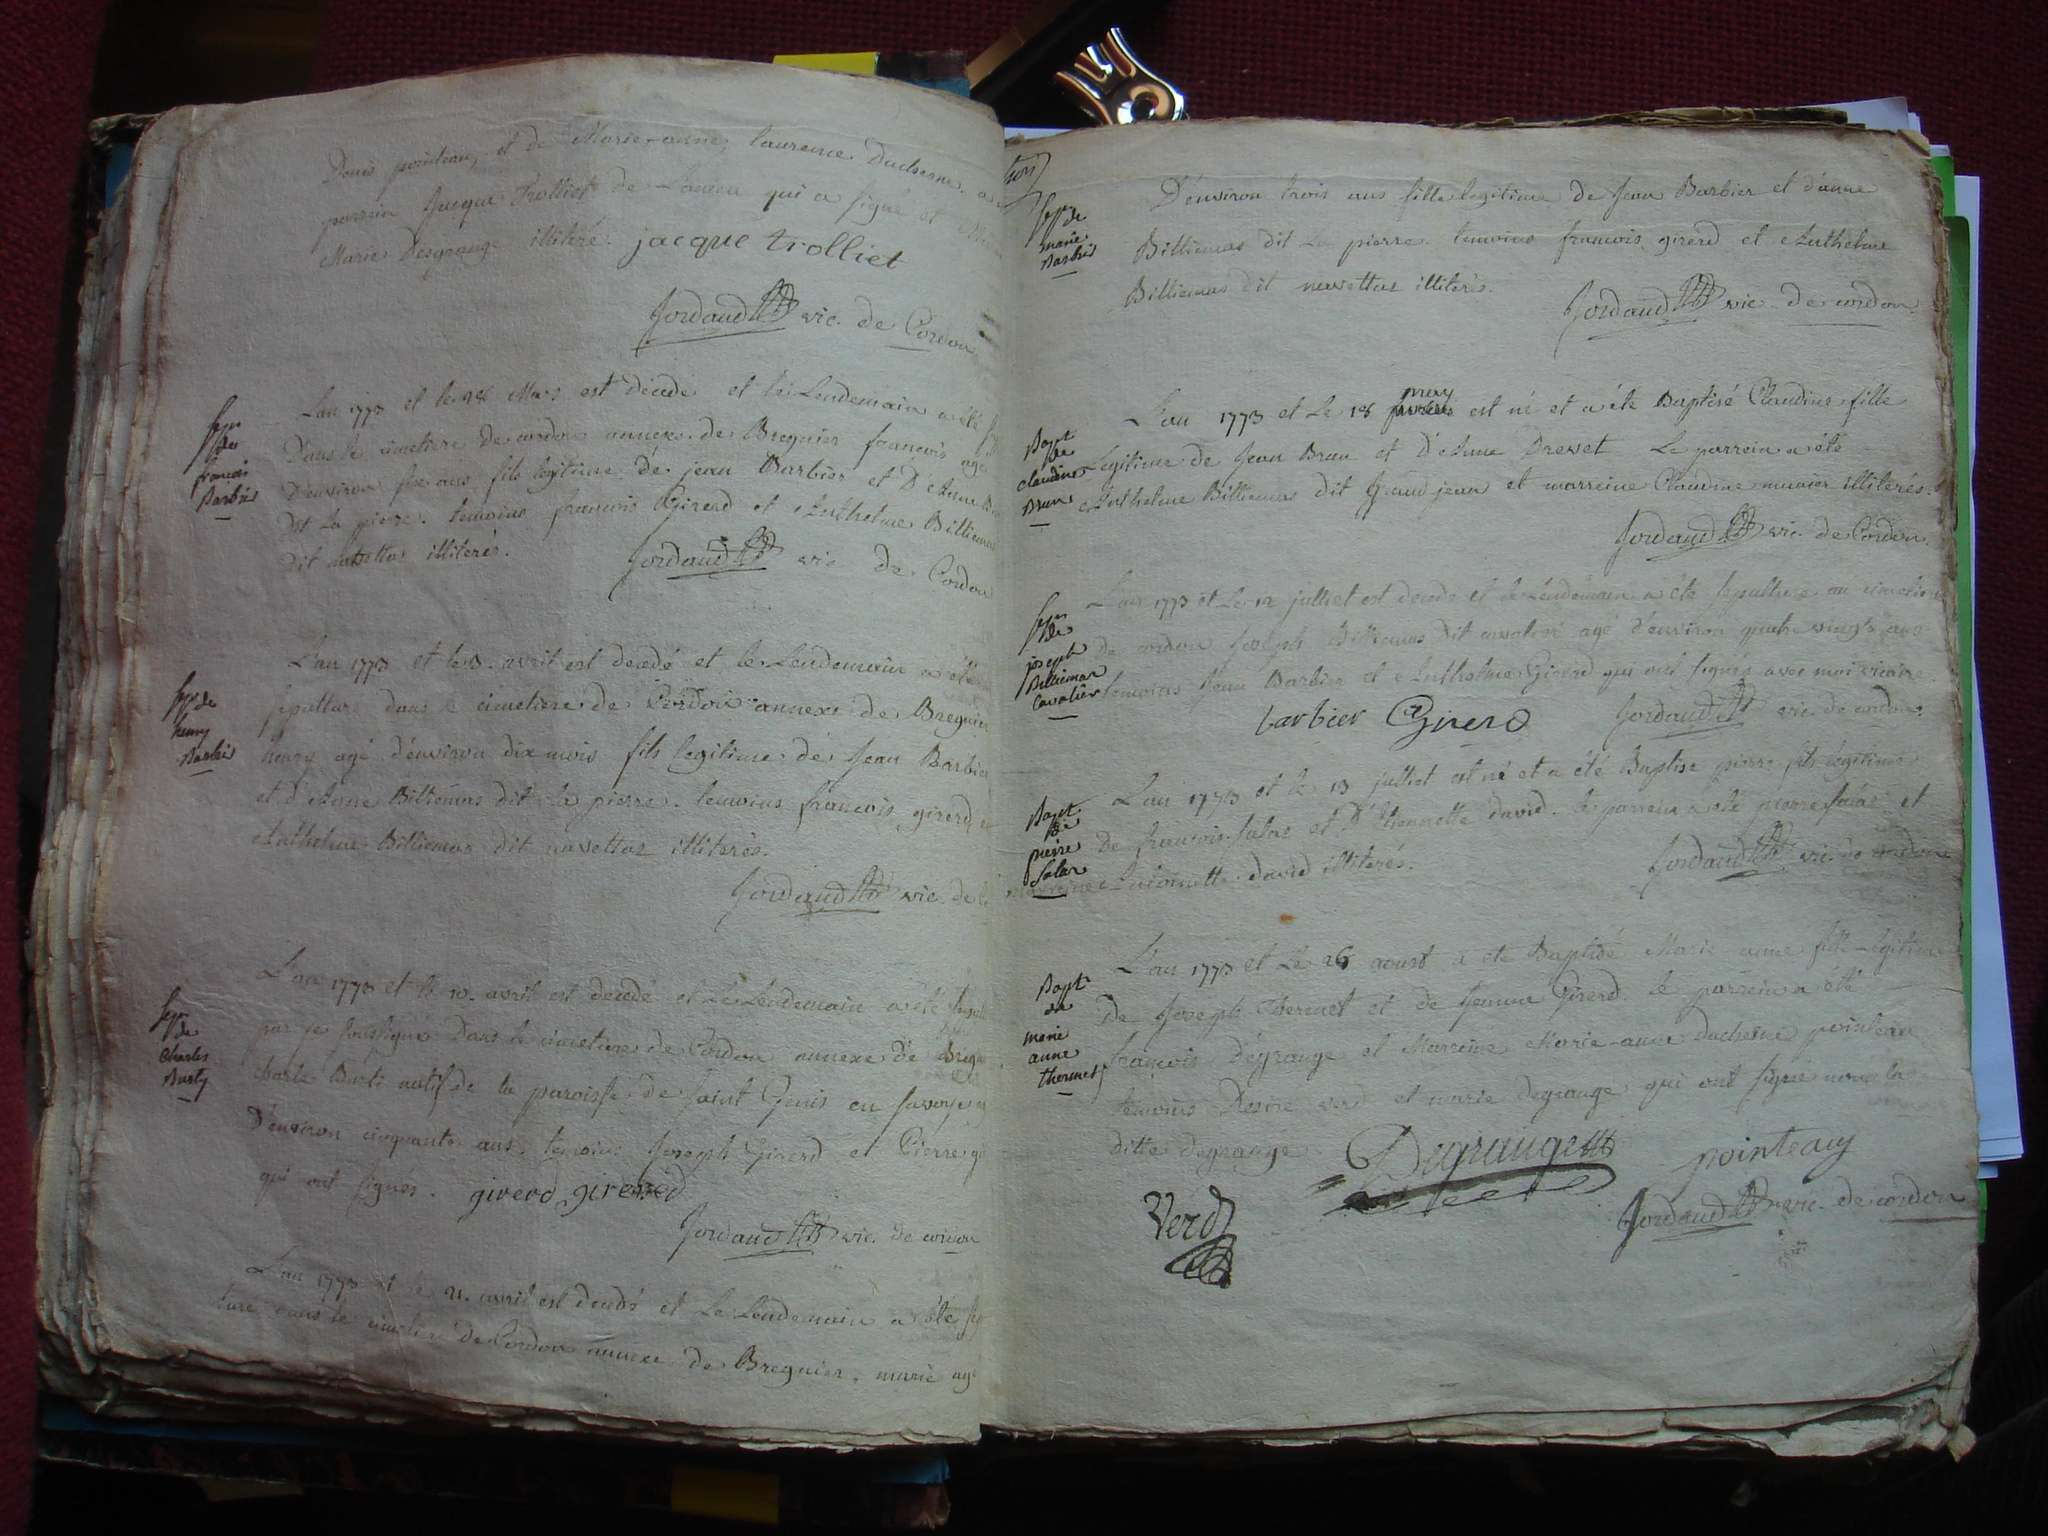 Denis pointeau, et de Marie-anne, laurence Duchesne. a
parrein Jacque Trolliet de Lanieu qui a signé et
Marie Desgrange illiteré. jacque trolliet
Jordaud vic. de Cordon
sepre
de
francois
Barbier
L'an 1773 et le 28 Mars est décédé et le Lendemain a été
Dans le cimetiere de cordon annexe de Bregnier francois agé
D'environ six ans fils legitime de jean Barbier et D'Anne
Dit La pierre. temoins francois Girerd et Anthelme Billiemas
dit navettas illiterés.
Jordaud vic de Cordon
sepre de
henry
Barbier
L'an 1773 et le 3. avril est decedé et le Lendemain a été
sepulturé dans le cimetiere de Cordon annexe de Bregnier
henry agé d'environ dix mois fils legitime de Jean Barbier
et d'Anne Billiemas dit la pierre. temoins francois girerd
Anthelme Billiemas dit navettas illiterés.
Jordaud vic. de
sepre
de
Charles
Burty
L'an 1773 et le 10. avril est decedé et Le Lendemain a été
par je soussigné Dans le cimetiere de Cordon annexe de
charle Burti natif de la paroisse de saint Genis en savoye
D'environ cinquante ans. temoins Joseph Girerd et Pierre
qui ont signés. girerd girerd
Jordaud vic. de cordon
L'an 1773 et le 21. avril est decedé et Le Lendemain a été
ture dans le cimetier de Cordon annexe de Bregnier. marie agé
sepre
de
marie
Barbier
D'environ trois ans fille legitime de Jean Barbier et d'anne
Billiemas dit La pierre. temoins francois girerd et Anthelme
Billiemas dit navettas illiterés.
Jordaud vic. de cordon
Bapt
de
claudine
Brun
L'an 1773 et Le 18 may est né et a été Baptisé Claudine fille
Legitime de Jean Brun et D'Anne Drevet Le parrein a été
Anthelme Billiemas dit grand jean et marreine Claudine munier illiterés.
Jordaud vic. de Cordon
sepre
de
joseph
Billiemas
Cavalier
L'an 1773 et Le 12 julliet est decedé et le Lendemain a été sepulturé au cimetiere
de cordon Joseph Billiemas dit cavalier agé d'environ quatre vingts ans
temoins Jean Barbier et Anthelme Girerd qui ont signés avec moi vicaire.
barbier Girerd Jordaud vic. de cordon
Bapt
de
pierre
Salar
L'an 1773 et le 13 julliet est né et a été Baptisé pierre fils legitime
De francois Salar et D'Etiennette david. le parrein a été pierre Salar et
marreine Antoinette david illiterés. Jordaud vic. de cordon
Bapt
de
marie
anne
thermet
L'an 1773 et Le 26 aoust a été Baptisé Marie anne fille Legitime
De Joseph Thermet et de Jeanne Girerd le parrein a été
francois Dégrange et Marreine Marie-anne duchesne pointeau
temoins Desiré verd et marie degrange qui ont signé non la
ditte degrange. Degrange pointeau
Verd Jordaud vic. de cordon